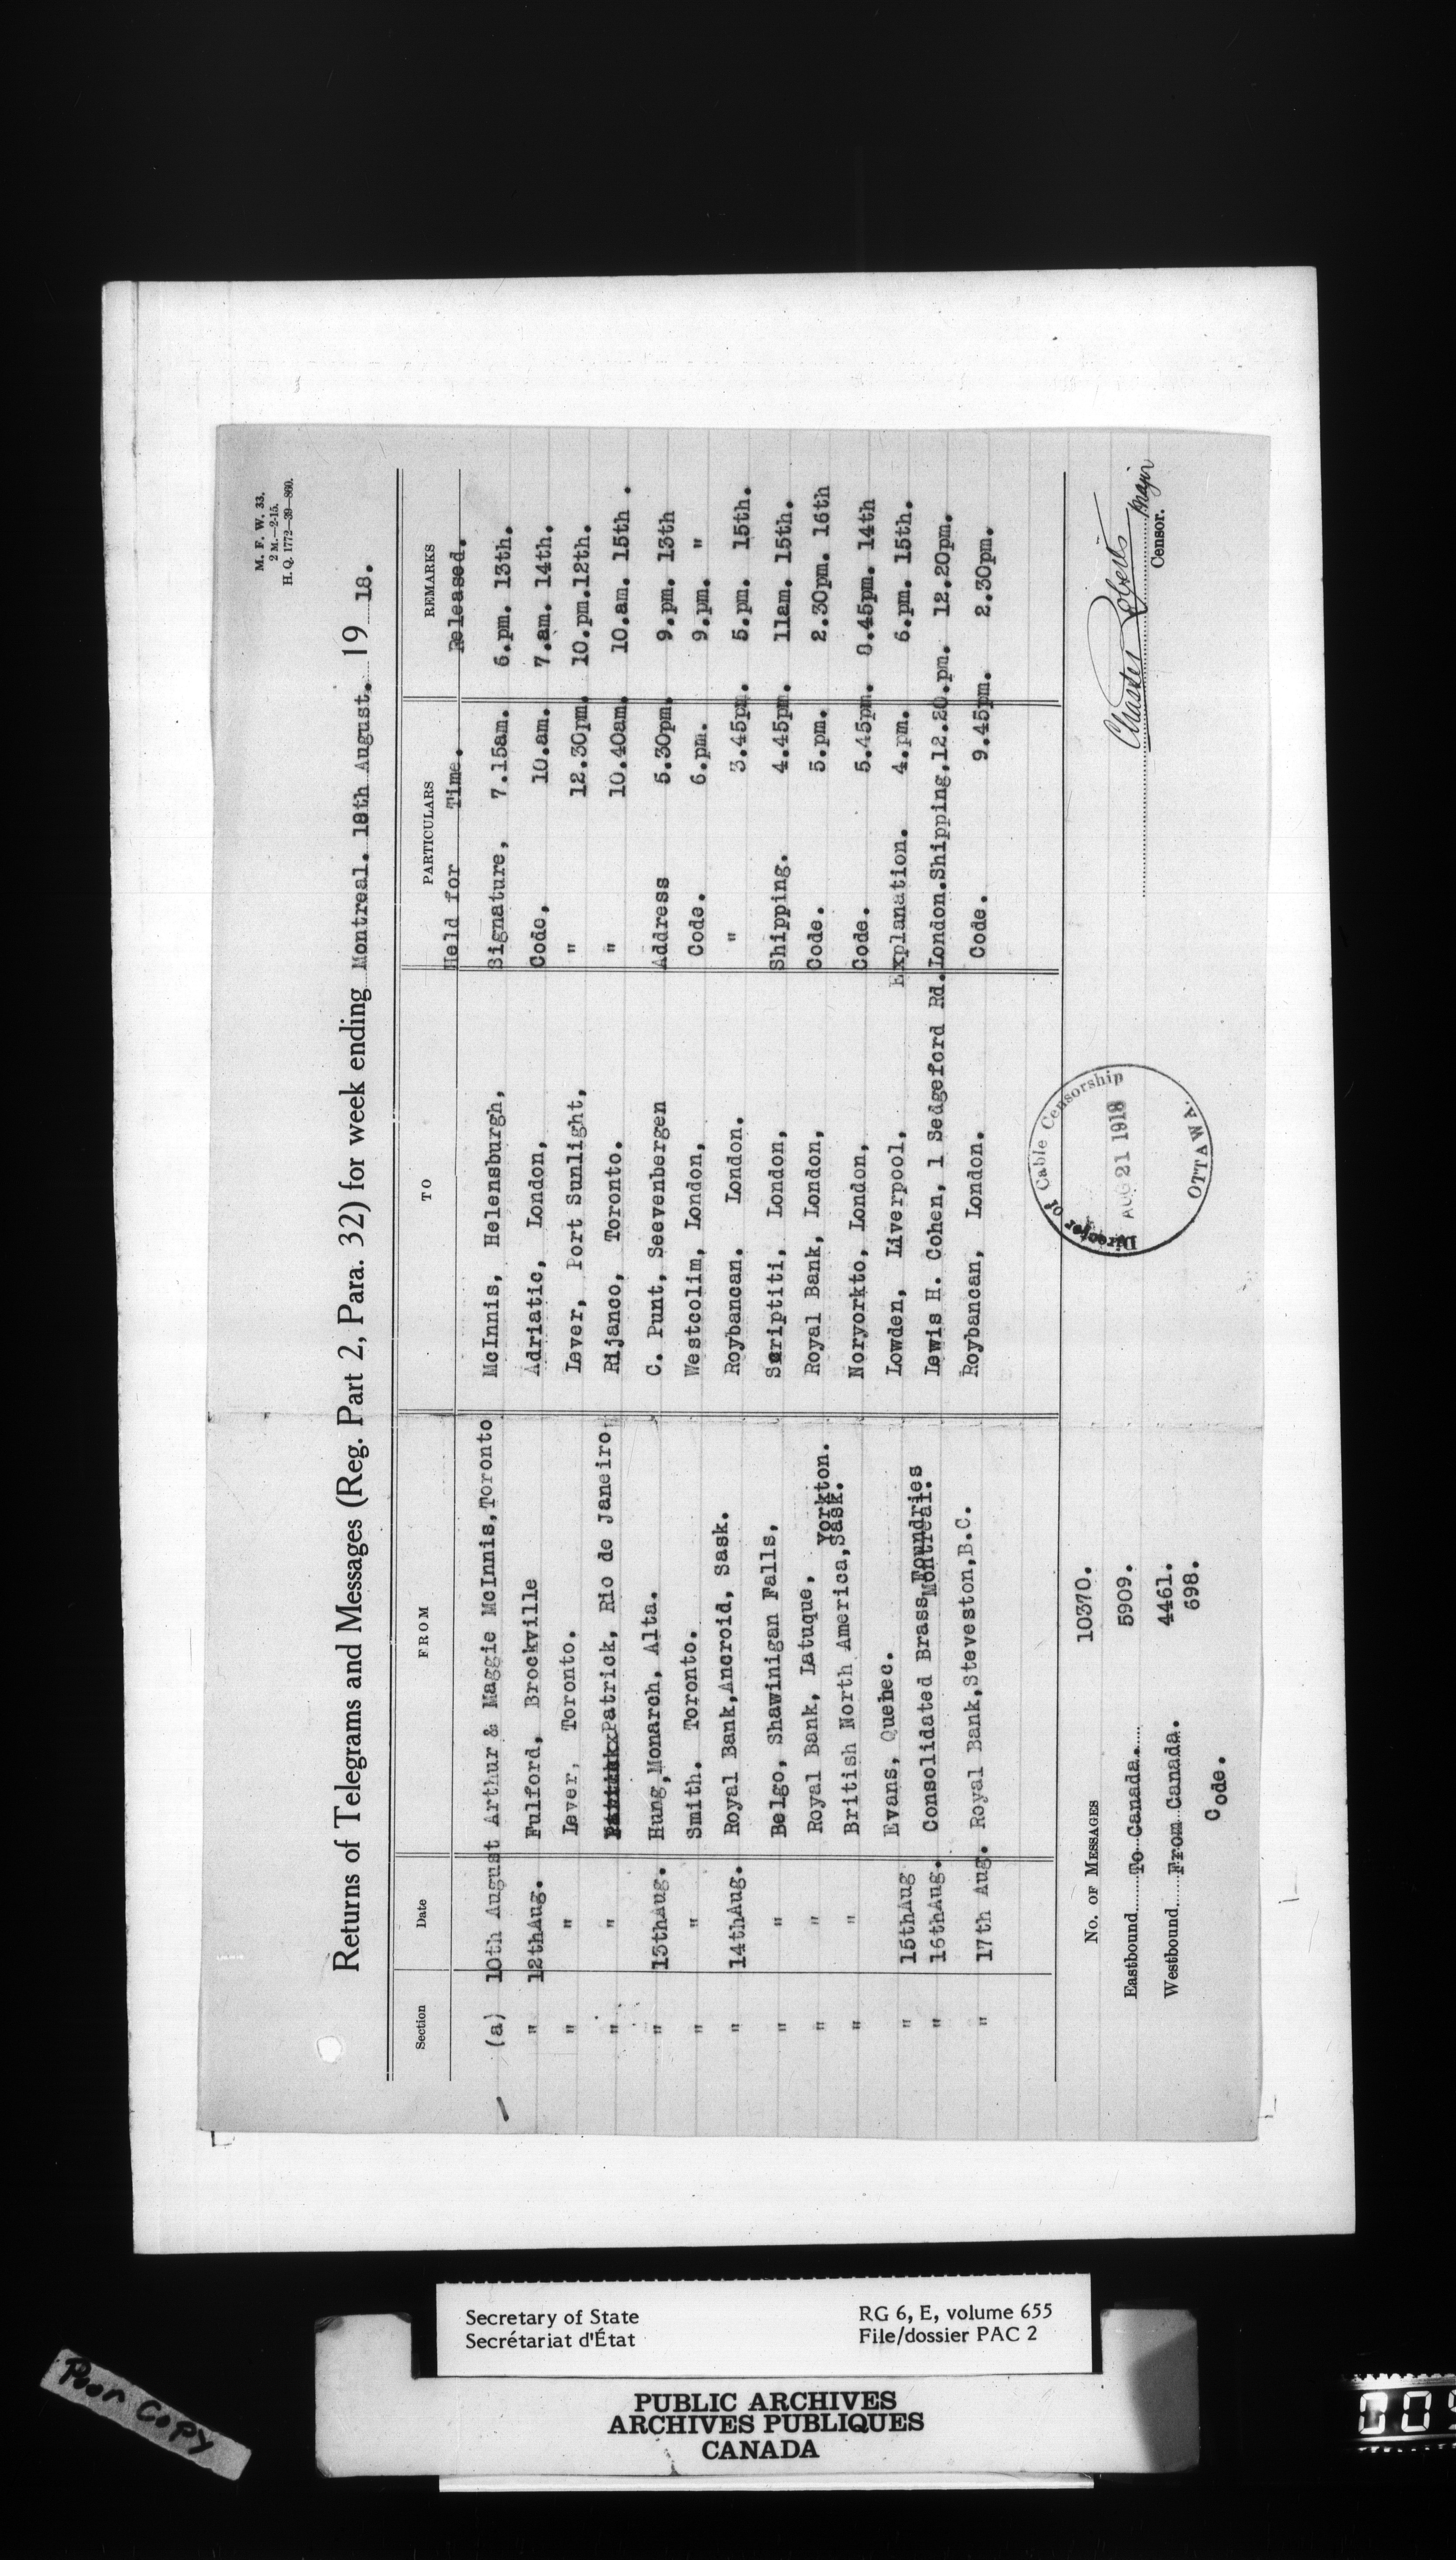 M. F. W. 33.
2 M.—2-15.
H. Q. 1772—39—860.
Returns of Telegrams and Messages (Reg. Part 2, Para. 32) for week ending Montreal. 18th August. 19 18.
Section Date FROM TO PARTICULARS REMARKS
Held for Time. Released.
(a) 10th August Arthur & Maggie McInnis, Toronto McInnis, Helensburgh, Signature, 7.15am. 6.pm. 13th.
" 12thAug. Fulford, Brockville Adriatic, London, Code, 10.am. 7.am. 14th.
" " Lever, Toronto. Lever, Port Sunlight, " 12.30pm. 10.pm.12th.
" " Patrick, Rio de Janeiro. Rijanco, Toronto. " 10.40am. 10.am. 15th.
" 13thAug. Hung, Monarch, Alta. C. Punt, Seevenbergen Address 5.30pm. 9.pm. 13th
" " Smith. Toronto. Westcolim, London, Code. 6.pm. 9.pm. "
" 14thAug. Royal Bank, Ancroid, Sask. Roybancan. London. " 3.45pm. 5.pm. 15th.
" " Belgo, Shawinigan Falls, Scriptiti, London, Shipping. 4.45pm. 11am. 15th.
" " Royal Bank, Latuque, Royal Bank, London, Code. 5.pm. 2.30pm. 16th
" " British North America, Yorkton. Sask. Noryorkto, London, Code. 5.45pm. 8.45pm. 14th
" 15thAug Evans, Quebec. Lowden, Liverpool, Explanation. 4.pm. 6.pm. 15th.
" 16thAug. Consolidated Brass Foundries Montreal. Lewis H. Cohen, 1 Sedgeford Rd. London. Shipping, 12.20.pm. 12.20pm.
" 17th Aug. Royal Bank, Steveston, B.C. Roybancan, London. Code. 9.45pm. 2.30pm.
No. OF MESSAGES 10370.
Eastbound To Canada. 5909.
Westbound From Canada. 4461.
Code. 698.
Director of Cable Censorship
AUG 21 1918
OTTAWA.
Chasser Roberts Major
Censor.
Secretary of State
Secrétariat d'État
RG 6, E, volume 655
File/dossier PAC 2
PUBLIC ARCHIVES
ARCHIVES PUBLIQUES
CANADA
Poor Copy